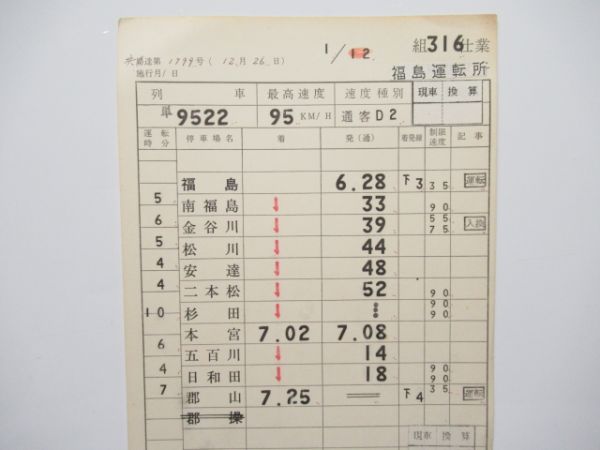 1/12 組316仕業
達第1799号(12月26日)
施行月/日
福島運転所
列車 最高速度 速度種別 現車 換算
単9522 95KM/H 通客D2
運転時分 停車場名 着 発(通) 着発線 制限速度 記事
福島 6.28 下3 35 運転
5
南福島 ↓ 33 90
6
金谷川 ↓ 39 55 75 入換
5
松川 ↓ 44
4
安達 ↓ 48
4
二本松 ↓ 52 90
10
杉田 ↓ 90
本宮 7.02 7.08
6
五百川 ↓ 14
4
日和田 ↓ 18 90 90
7
郡山 7.25 = 下4 35 運転
郡操
現車 換算